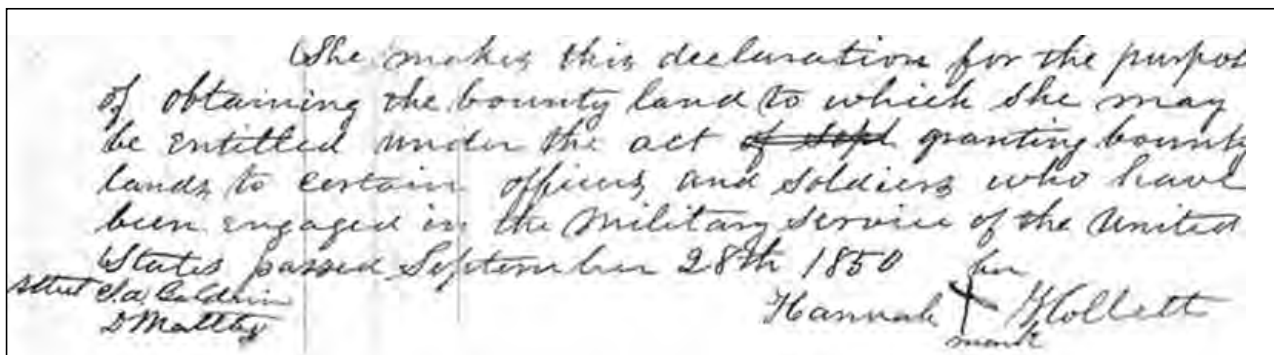 She makes this declaration for the purpos
of obtaining the bounty land to which she may
be entitled under the act of Sept granting bounty
lands to certain officers and soldiers who have
been engaged in the military service of the United
States passed September 28th 1850
her
attest Baldwin
Hannah X Hollett
D Maltby
mark